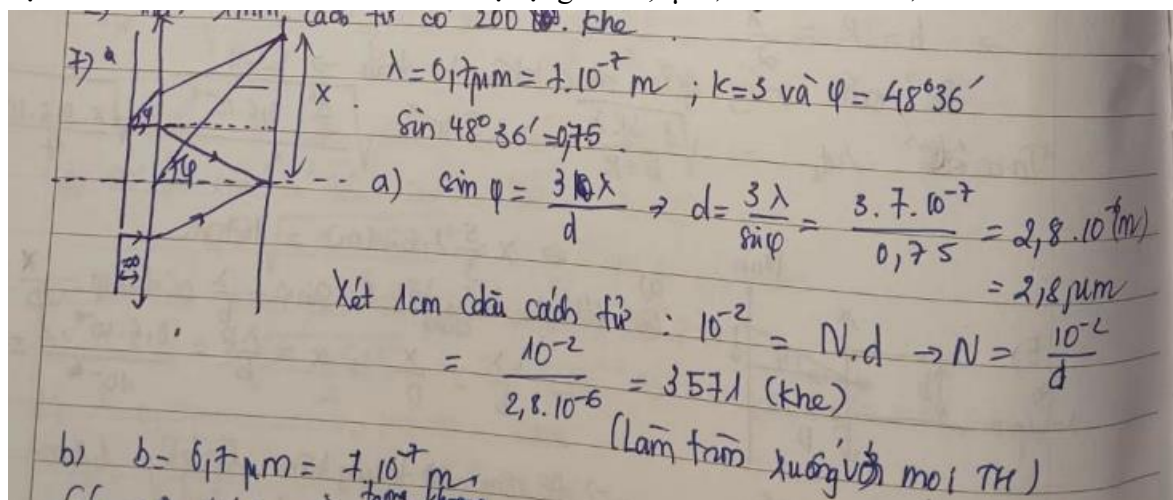 1mm cách tử có 200 khe.
7)
x
φ
λ = 0,7μm = 7.10⁻⁷ m ; k=3 và φ = 48°36'
sin 48°36' = 0,75.
a) sin φ = 3λ/d → d = 3λ/sinφ = 3.7.10⁻⁷/0,75 = 2,8.10⁻⁶(m)
= 2,8μm
Xét 1cm cdài cách tử : 10⁻² = N.d → N = 10⁻²/d
= 10⁻²/2,8.10⁻⁶ = 3571 (khe)
(Làm tròn xuống với mọi TH)
b) b = 0,7 μm = 7.10⁻⁷ m